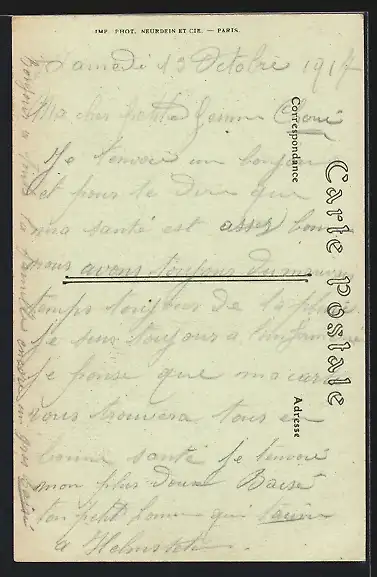 IMP. PHOT. NEURDEIN ET CIE. — PARIS.
Samedi 13 Octobre 1917
Ma cher petite femme
Je tenvoie un bonjour
et pour te dire que
ma santé est assez bonne
nous avons toujour du mauvais
temps toujour de la pluie
Je suis toujour a
Je pense que ma carte
vous trouvera tous en
bonne santé Je tenvoie
mon plus doux Baisé
ton petit homme qui
a
Correspondance
Carte Postale
Adresse
Bonjour a toute la famille encore un gros